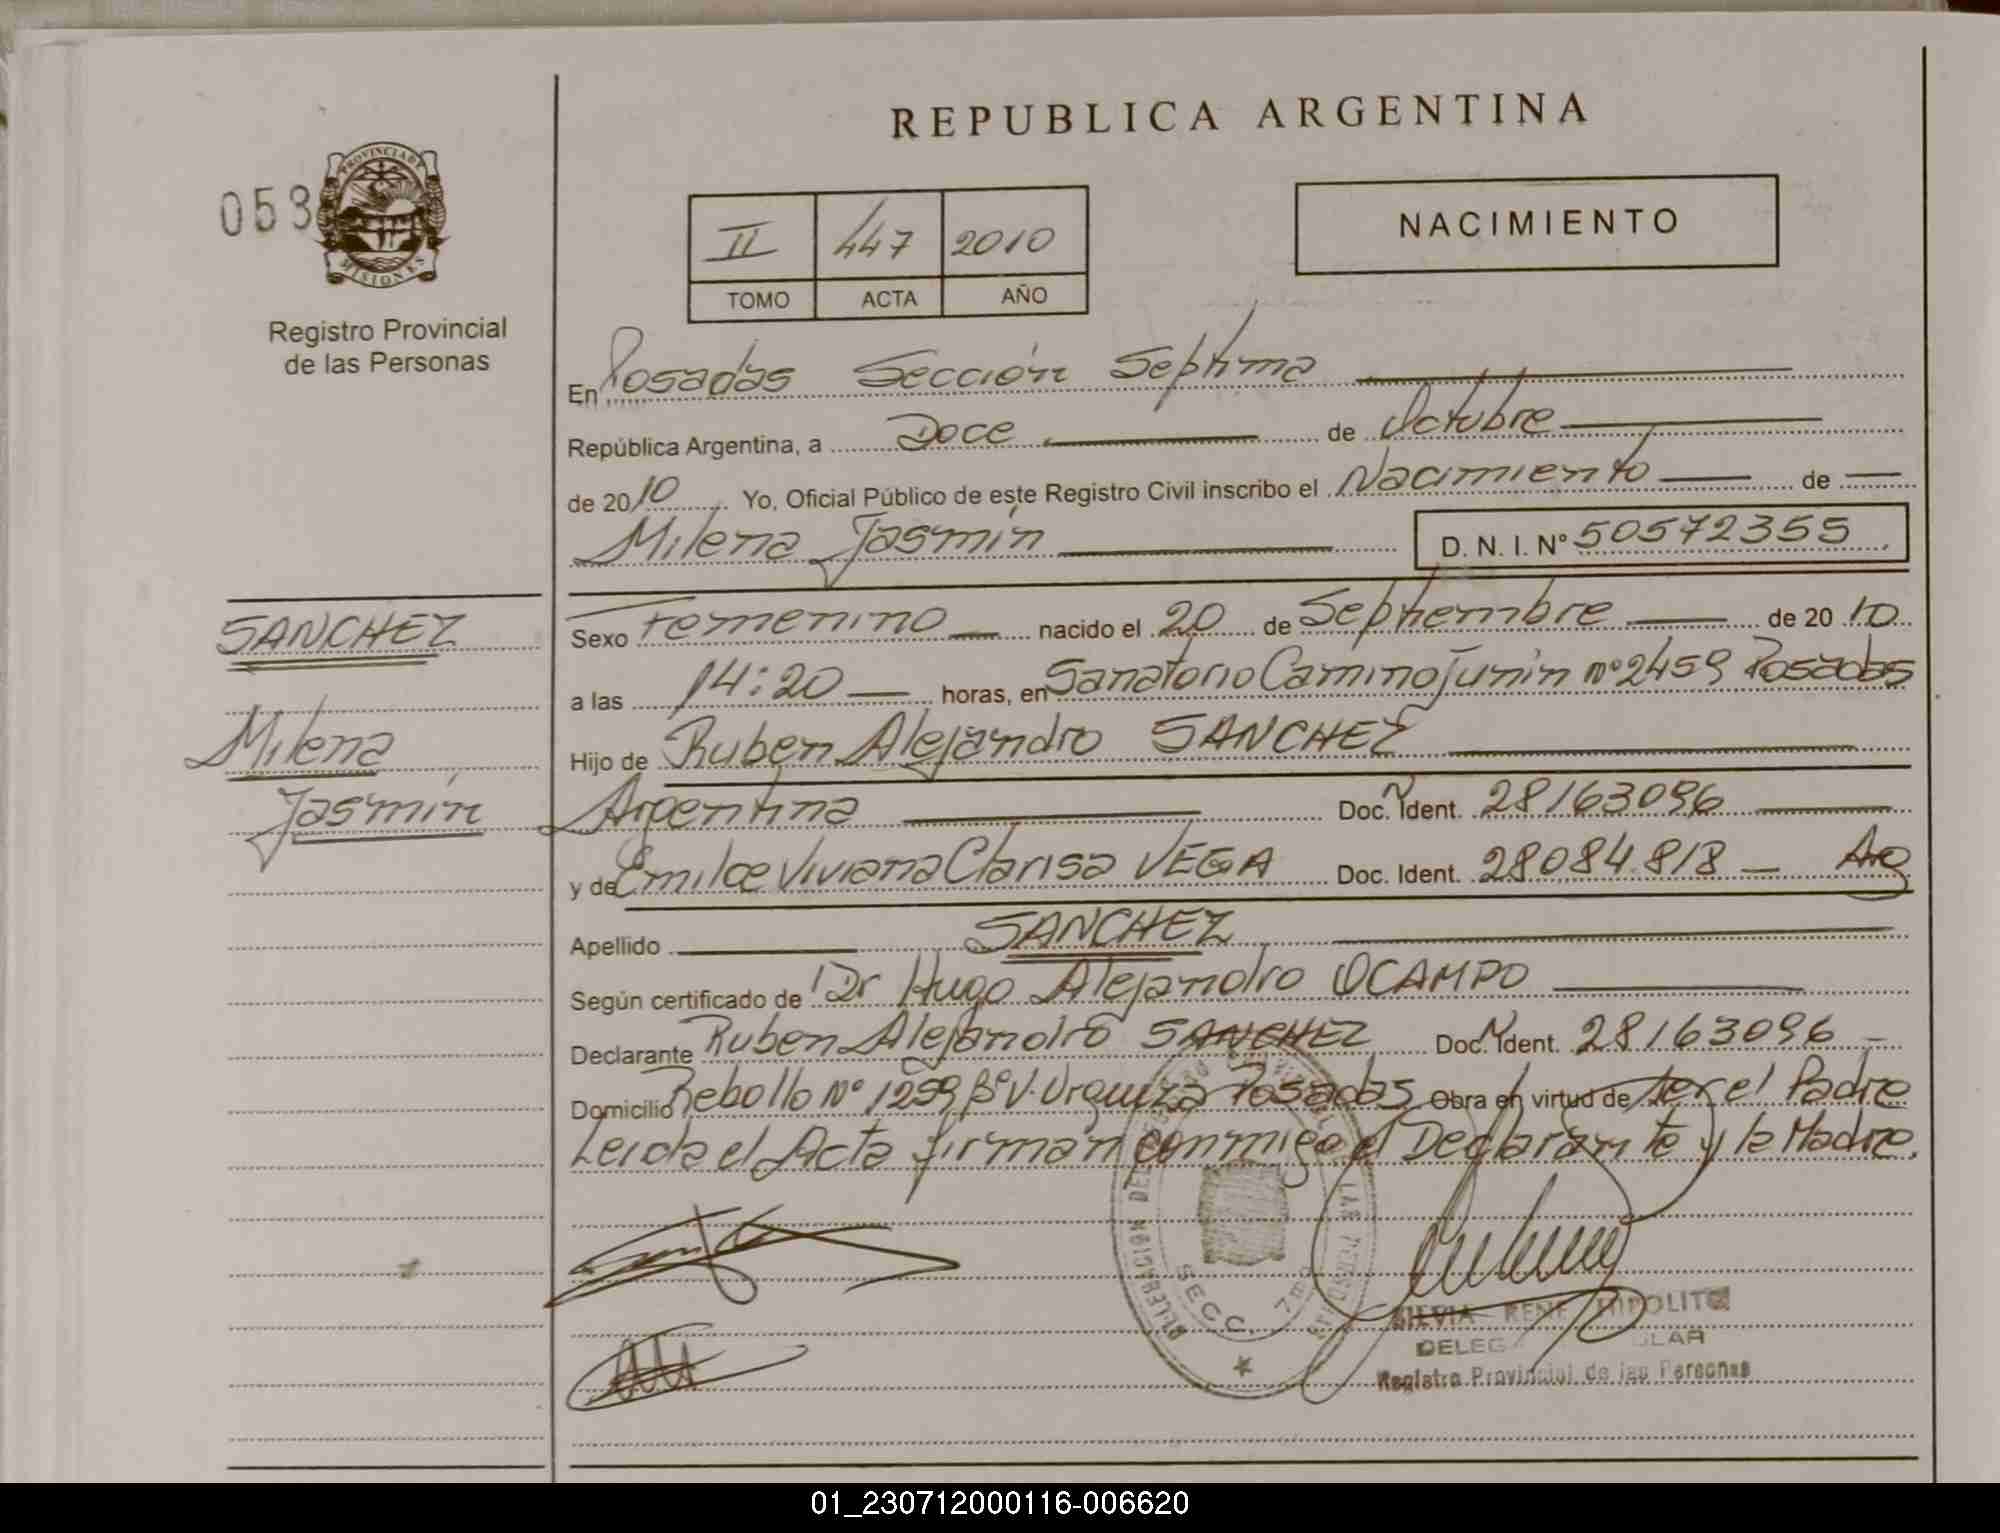 REPUBLICA ARGENTINA
053
PROVINCIA DE
MISIONES
Registro Provincial
de las Personas
II 447 2010
TOMO ACTA AÑO
NACIMIENTO
En Posadas Sección Septima
República Argentina, a Doce de Octubre
de 2010 Yo, Oficial Público de este Registro Civil inscribo el Nacimiento de
Milena Jasmín D. N. I. Nº 50572355
SANCHEZ
Milena
Jasmín
Sexo Femenino nacido el 20 de Septiembre de 2010
a las 14:20 horas, en Sanatorio Camino Junin nº 2459 Posadas
Hijo de Ruben Alejandro SANCHEZ
Argentina Doc. Ident. 28163096
y de Emilce Viviana Clarisa VEGA Doc. Ident. 28084.818 Arg
Apellido SANCHEZ
Según certificado de Dr Hugo Alejandro OCAMPO
Declarante Ruben Alejandro SANCHEZ Doc. Ident. 28163096
Domicilio Rebollo Nº 1259 Bº V. Urquiza Posadas Obra en virtud de ser el Padre
Leida el Acta firman conmigo el Declarante y la Madre.
SECC. 7ma
SILVIA RENE HIPOLITO
Registro Provincial de las Personas
01_230712000116-006620